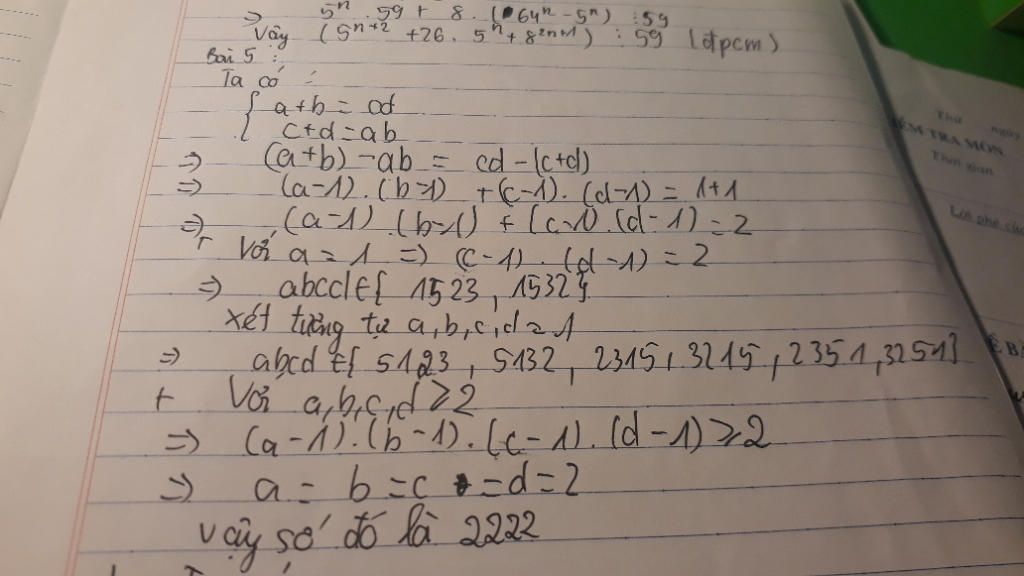 => 5ⁿ . 59 + 8 . (64ⁿ - 5ⁿ) ⋮ 59
Vậy (5ⁿ⁺² + 26 . 5ⁿ + 8²ⁿ⁺¹) ⋮ 59 (đpcm)
Bài 5 :
Ta có :
{ a+b = cd
c+d = ab
=> (a+b) - ab = cd - (c+d)
=> (a-1) . (b-1) + (c-1) . (d-1) = 1+1
=> (a-1) . (b-1) + (c-1) . (d-1) = 2
+ Với a = 1 => (c-1) . (d-1) = 2
=> abcd ∈ { 1523 , 1532 }
xét tương tự a, b, c, d = 1
=> abcd ∈ { 5123 , 5132 , 2315 , 3215 , 2351 , 3251 }
+ Với a, b, c, d ⩾ 2
=> (a-1) . (b-1) . (c-1) . (d-1) ⩾ 2
=> a = b = c = d = 2
Vậy số đó là 2222
Thứ ngày
KIỂM TRA MÔN
Thời gian
Lời phê